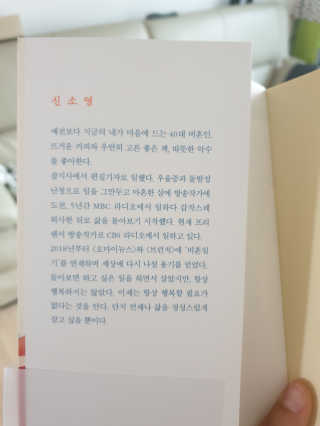 신소영
예전보다 지금의 내가 마음에 드는 40대 비혼인.
뜨거운 커피와 우연히 고른 좋은 책, 따뜻한 악수
를 좋아한다.
잡지사에서 편집기자로 일했다. 우울증과 돌발성
난청으로 일을 그만두고 마흔한 살에 방송작가에
도전, 5년간 MBC 라디오에서 일하다 갑작스레
퇴사한 뒤로 삶을 돌아보기 시작했다. 현재 프리
랜서 방송작가로 CBS 라디오에서 일하고 있다.
2018년부터 <오마이뉴스>와 <브런치>에 '비혼일
기'를 연재하며 세상에 다시 나설 용기를 얻었다.
돌아보면 하고 싶은 일을 하면서 살았지만, 항상
행복하지는 않았다. 이제는 항상 행복할 필요가
없다는 것을 안다. 단지 언제나 삶을 정성스럽게
살고 싶을 뿐이다.